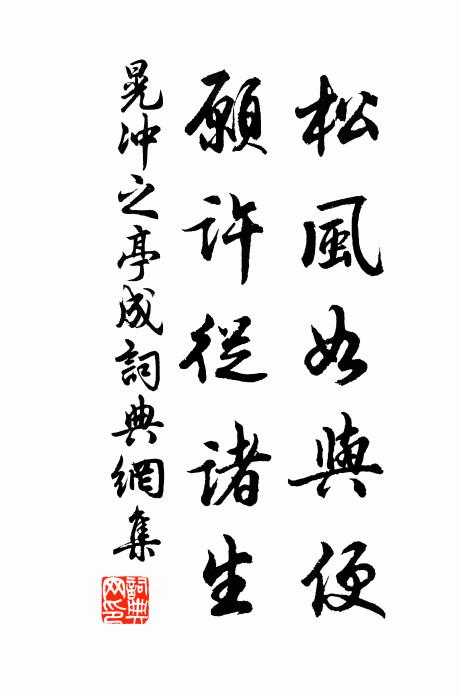 松風如與便
願許從諸生
晃沖之亭成詞典網集
詞典網印